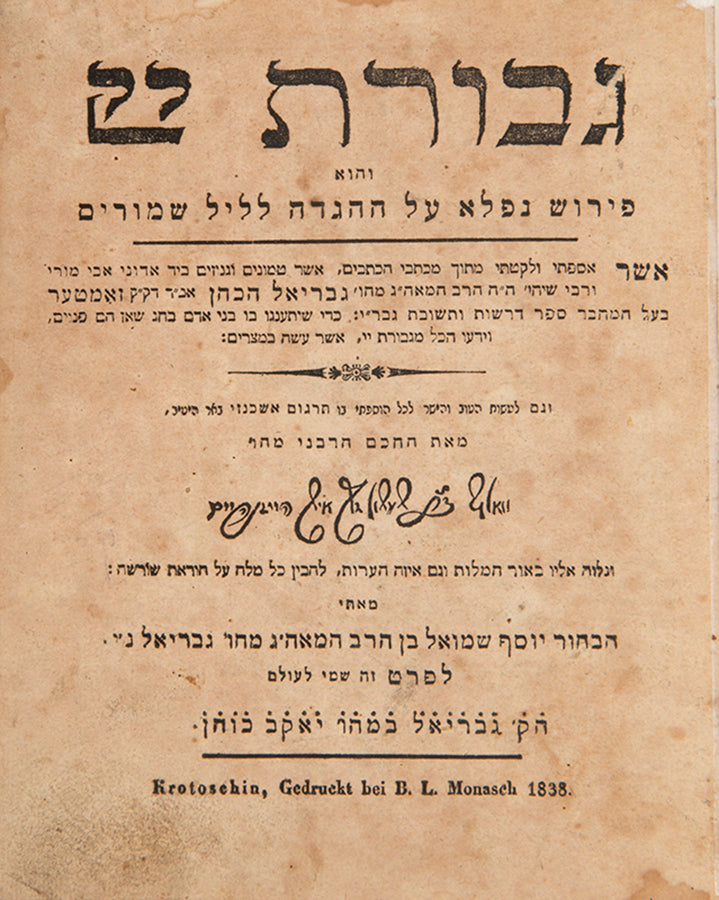 גבורת יי
והוא
פירוש נפלא על ההגדה לליל שמורים
אשר אספתי ולקטתי מתוך מכתבי הכתבים, אשר טמונים וגנוזים ביד אדוני אבי מורי
ורבי שיחי׳ ה״ה הרב המאה״ג מהו׳ גבריאל הכהן אב״ד דק״ק זאמטער
בעל המחבר ספר דרשות ותשובת גבר״י: כדי שיתענגו בו בני אדם בחג שאן הם פנויים,
וידעו הכל מגבורת יי, אשר עשה במצרים:
וגם לעשות הטוב והישר לכל הוספתי בו תרגום אשכנזי באר היטיב,
מאת החכם הרבני מהו׳
וואלף
ונלוה אליו באור המלות וגם איזה הערות, להבין כל מלה על הוראת שורשה:
מאתי
הבחור יוסף שמואל בן הרב המאה״ג מהו׳ גבריאל נ״י.
לפרט זה שמי לעולם
הק׳ גבריאל במהו יאקב כוהן.
Krotoschin, Gedruckt bei B. L. Monasch 1838.